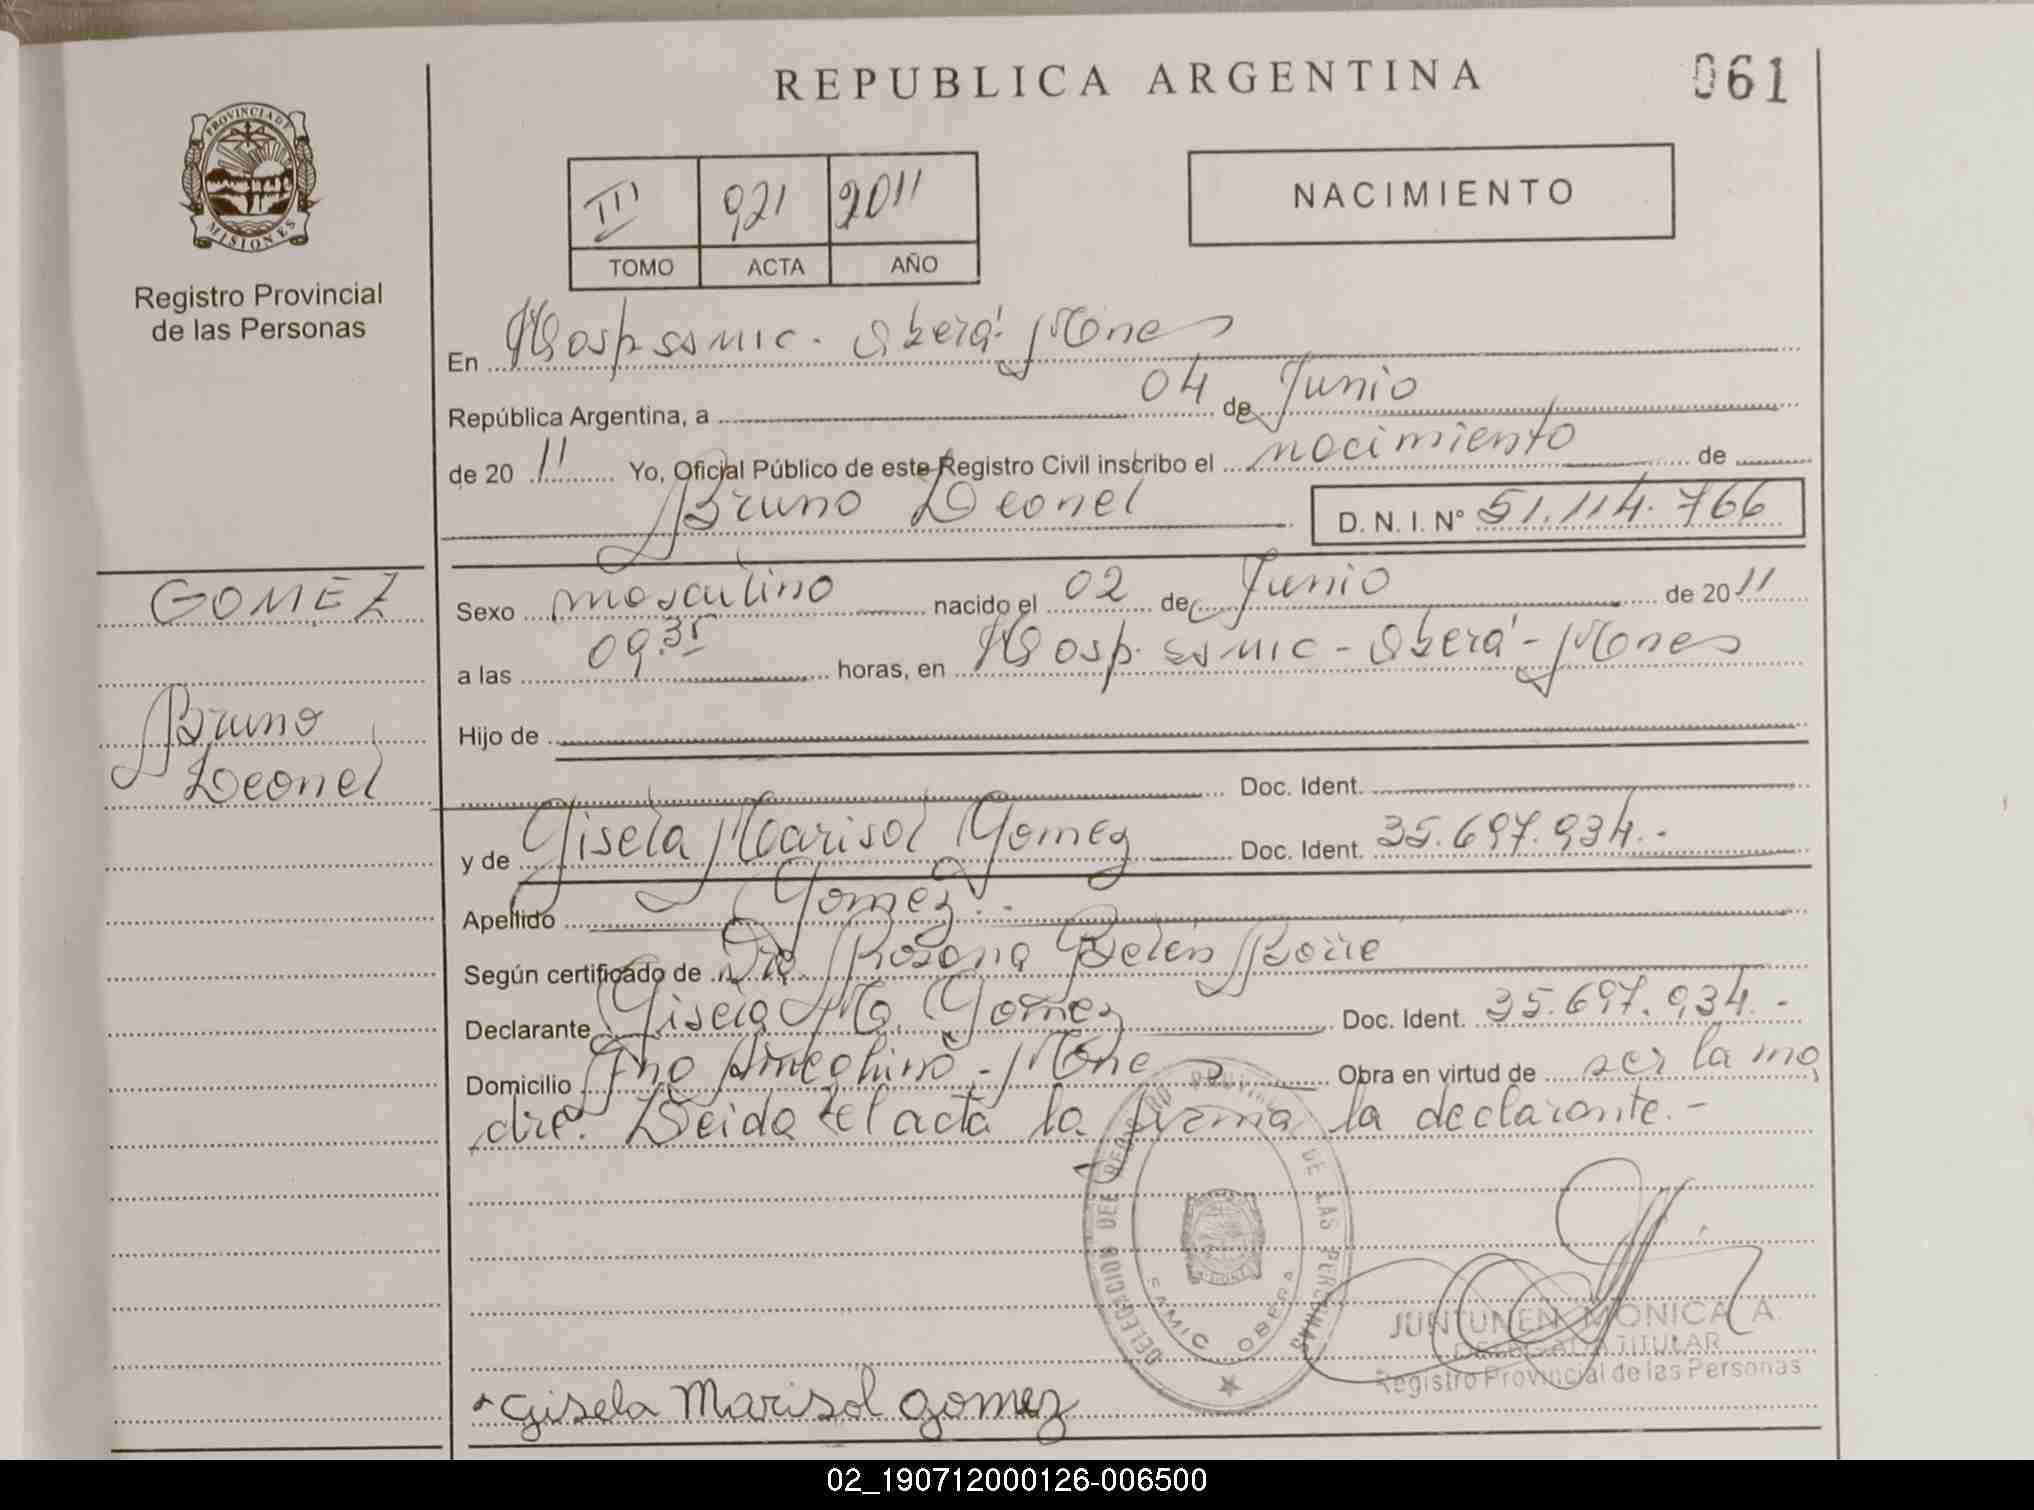 REPUBLICA ARGENTINA
061
PROVINCIA DE
MISIONES
Registro Provincial
de las Personas
III 921 2011
TOMO ACTA AÑO
NACIMIENTO
En Hosp. SAMIC. Oberá. Mones
República Argentina, a 04 de Junio
de 2011 Yo, Oficial Público de este Registro Civil inscribo el nacimiento de
Bruno Leonel D. N. I. N° 51.114.766
GOMEZ
Bruno
Leonel
Sexo masculino nacido el 02 de Junio de 2011
a las 09.35 horas, en Hosp. SAMIC - Oberá - Mones
Hijo de
Doc. Ident.
y de Gisela Marisol Gomez Doc. Ident. 35.697.934.-
Apellido Gomez.-
Según certificado de Dra. Rosana Belén
Declarante Gisela Ma. Gomez Doc. Ident. 35.697.934.-
Domicilio Ameghino - Mones Obra en virtud de ser la ma
dre. Leida el acta la firma la declarante.-
DELEGACION DEL REGISTRO PROVINCIAL DE LAS PERSONAS
SAMIC OBERA
JUNTUNEN MONICA A.
DELEGADA TITULAR
Registro Provincial de las Personas
Gisela Marisol gomez
02_190712000126-006500